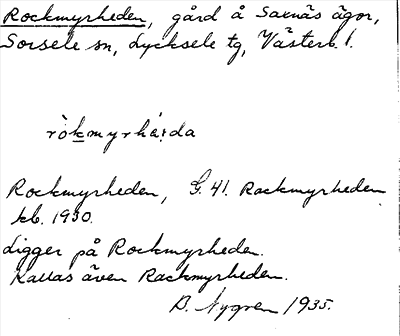 Rockmyrheden, gård å Saxnäs ägor,
Sorsele sn, Lycksele tg, Västerb. l.
ròkmyrhá:da
Rockmyrheden, G. 41. Rackmyrheden
kb. 1930.
Ligger på Rockmyrheden.
Kallas även Rackmyrheden.
B. Nygren 1935.